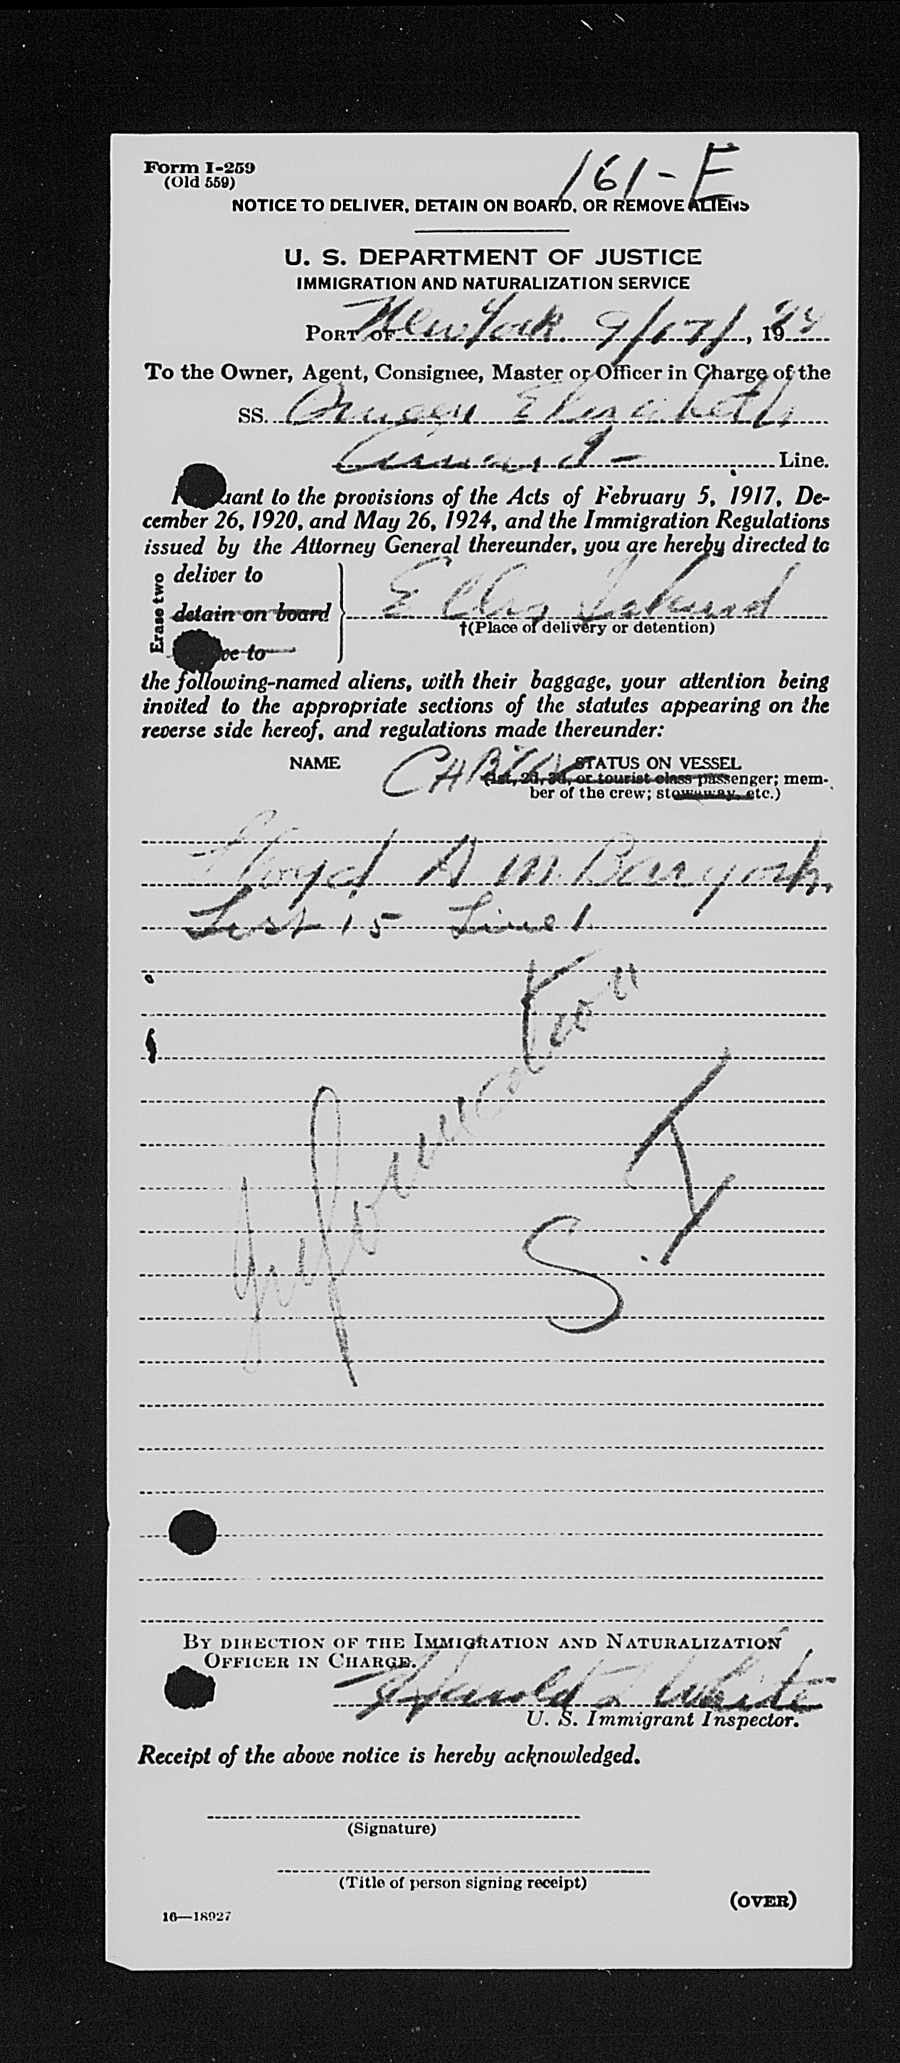 Form I-259
(Old 559)
161-E
NOTICE TO DELIVER, DETAIN ON BOARD, OR REMOVE ALIENS
U. S. DEPARTMENT OF JUSTICE
IMMIGRATION AND NATURALIZATION SERVICE
PORT OF New York 9/17/, 1944
To the Owner, Agent, Consignee, Master or Officer in Charge of the
SS. Queen Elizabeth
Cunard - Line.
uant to the provisions of the Acts of February 5, 1917, De-
cember 26, 1920, and May 26, 1924, and the Immigration Regulations
issued by the Attorney General thereunder, you are hereby directed to
Erase two
deliver to
detain on board Ellis Island
†(Place of delivery or detention)
ve to
the following-named aliens, with their baggage, your attention being
invited to the appropriate sections of the statutes appearing on the
reverse side hereof, and regulations made thereunder:
NAME CABIN STATUS ON VESSEL
(1st, 2d, 3d, or tourist class passenger; mem-
ber of the crew; stowaway, etc.)
Lloyd A M
List 15 Line 1
Information
S. I
BY DIRECTION OF THE IMMIGRATION AND NATURALIZATION
OFFICER IN CHARGE.
Harold L White
U. S. Immigrant Inspector.
Receipt of the above notice is hereby acknowledged.
(Signature)
(Title of person signing receipt)
(OVER)
16—18927